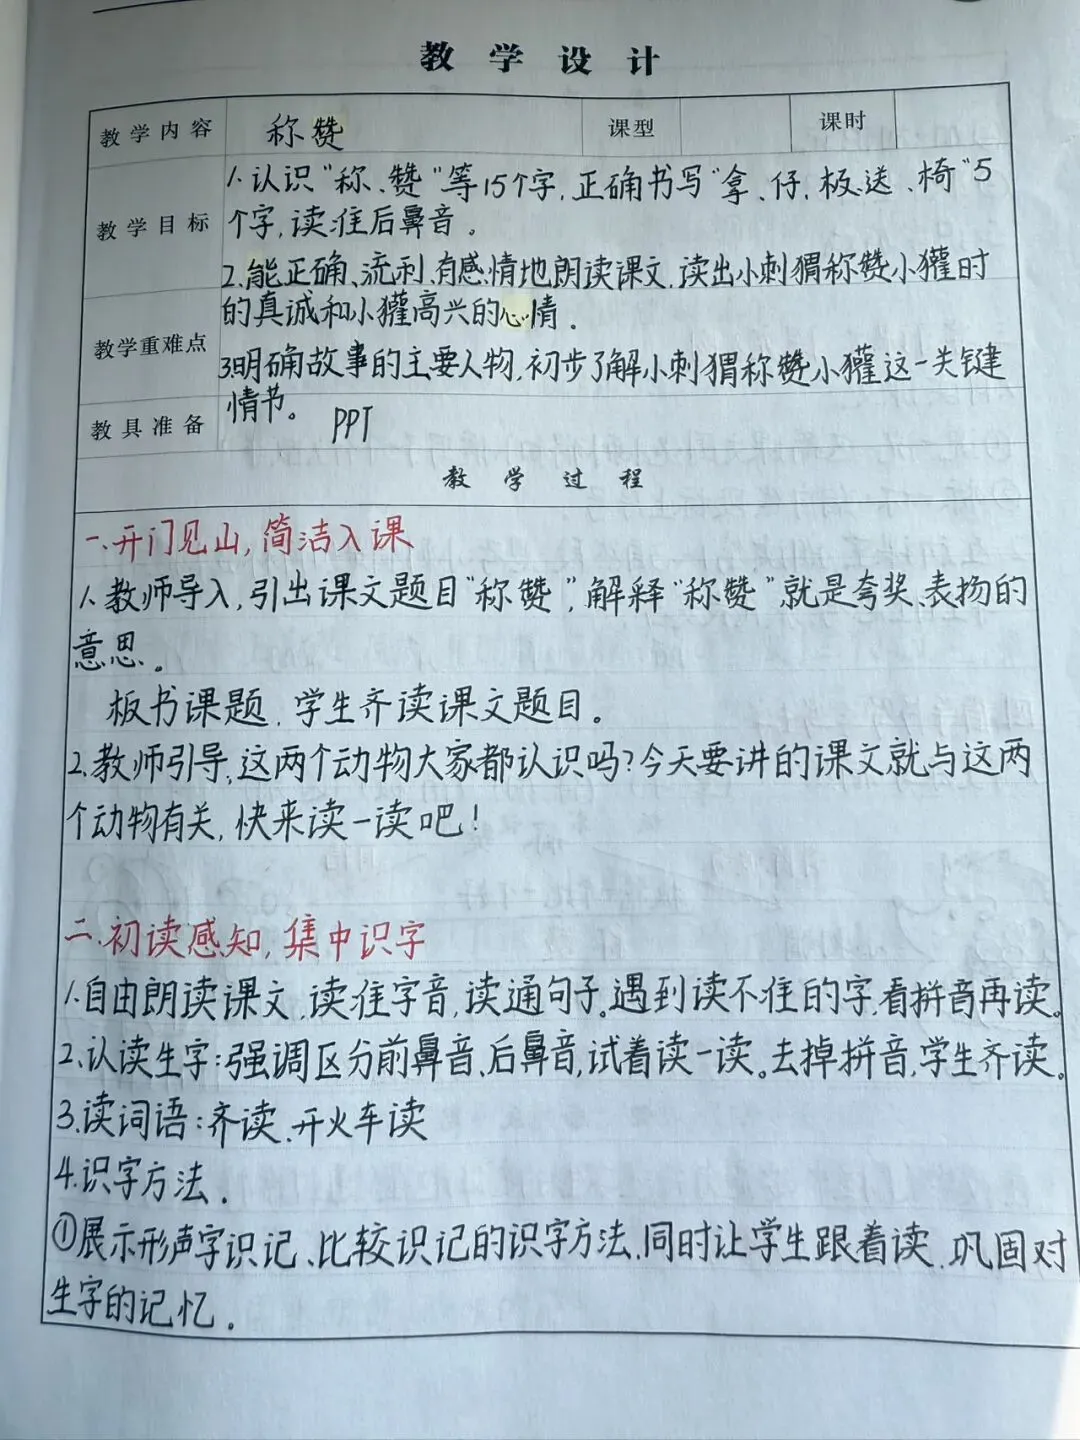 教学设计
教学内容 称赞 课型 课时
教学目标
1.认识“称、赞”等15个字,正确书写“拿、仔、板、送、椅”5
个字,读准后鼻音。
2.能正确、流利、有感情地朗读课文,读出小刺猬称赞小獾时
的真诚和小獾高兴的心情.
教学重难点
3.明确故事的主要人物,初步了解小刺猬称赞小獾这一关键
情节。
教具准备 PPT
教学过程
一.开门见山,简洁入课
1.教师导入,引出课文题目“称赞”,解释“称赞”就是夸奖、表扬的
意思.
板书课题,学生齐读课文题目。
2.教师引导,这两个动物大家都认识吗?今天要讲的课文就与这两
个动物有关,快来读一读吧!
二.初读感知,集中识字
1.自由朗读课文,读准字音,读通句子。遇到读不准的字,看拼音再读。
2.认读生字:强调区分前鼻音、后鼻音,试着读一读。去掉拼音,学生齐读。
3.读词语:齐读、开火车读
4.识字方法.
①展示形声字识记、比较识记的识字方法,同时让学生跟着读,巩固对
生字的记忆.